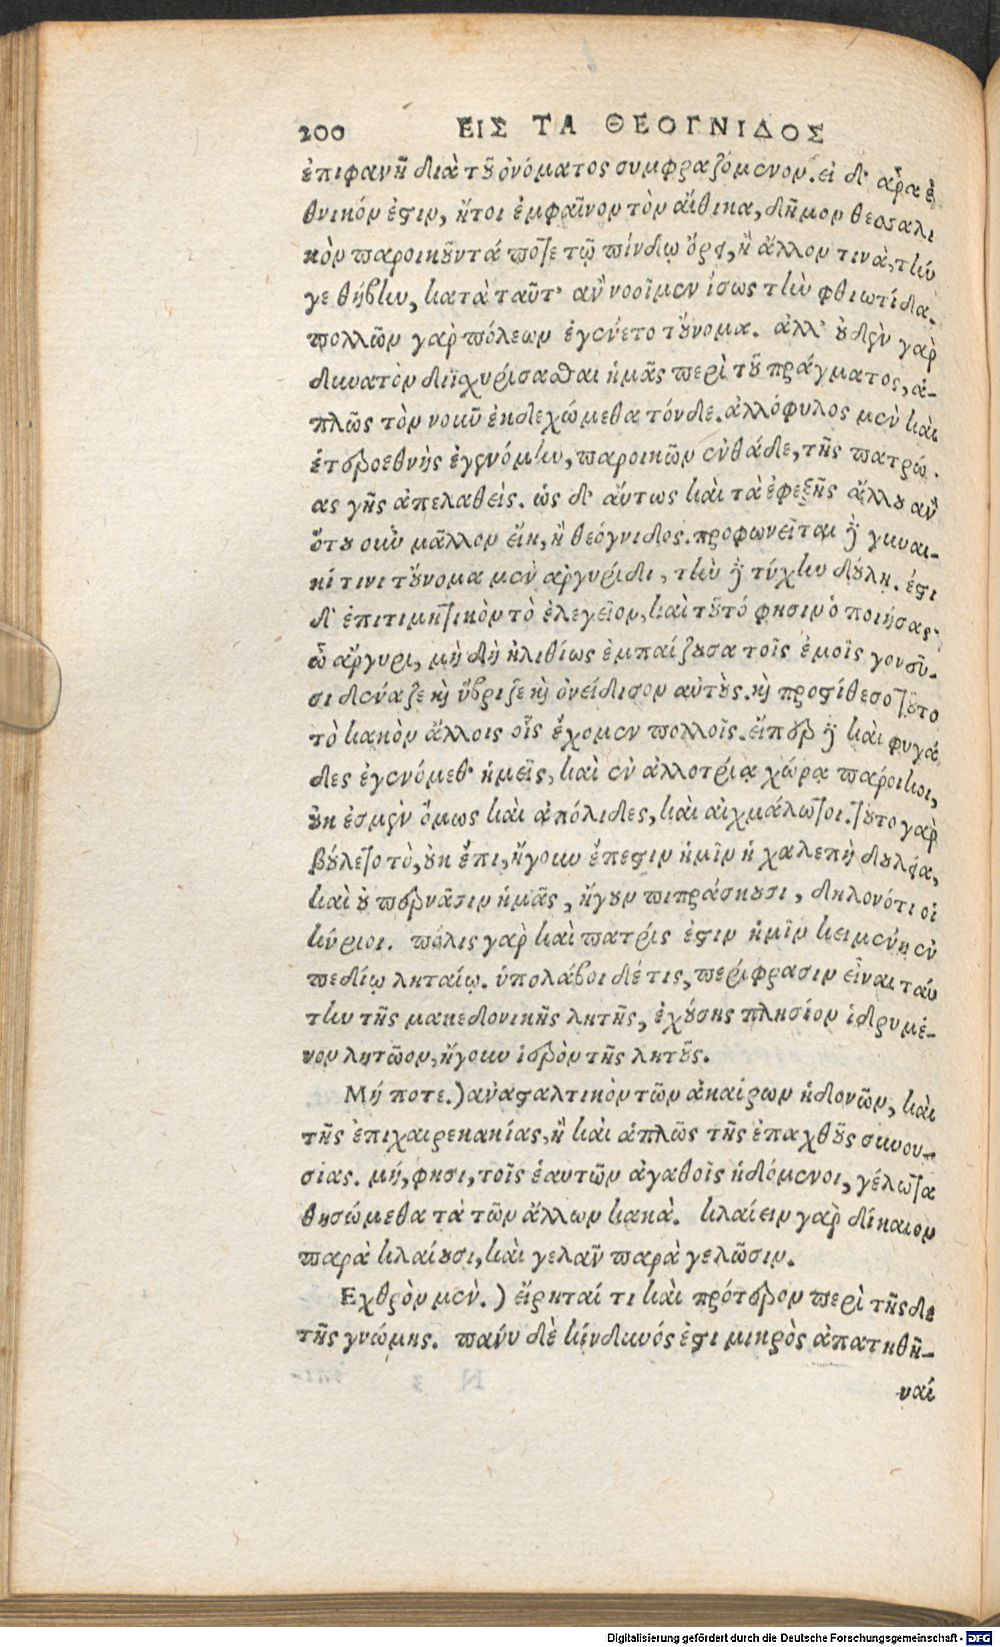 200 ΕΙΣ ΤΑ ΘΕΟΓΝΙΔΟΣ
ἐπιφανῆ διὰ τοῦ ὀνόματος συμφραζόμενον. εἰ δ' ἄρα ἐ
θνικόν ἐστιν, ἤτοι ἐμφαῖνον τὸν αἴθικα, δῆμον θεσσαλι
κὸν παροικοῦντά ποτε τῷ πίνδῳ ὄρει, ἢ ἄλλον τινὰ, τὴν
γε θήβην, κατὰ ταῦτ' ἂν νοοῖμεν ἴσως τὴν φθιωτίδα.
πολλῶν γὰρ πόλεων ἐγένετο τοὔνομα. ἀλλ' οὐδὲν γὰρ
δυνατὸν διϊσχυρίσασθαι ἡμᾶς περὶ τοῦ πράγματος, ἁ-
πλῶς τὸν νοῦν ἐκδεχώμεθα τόνδε. ἀλλόφυλος μὲν καὶ
ἑτεροεθνὴς ἐγενόμην, παροικῶν ἐνθάδε, τῆς πατρώ-
ας γῆς ἀπελαθείς. ὡς δ' αὔτως καὶ τὰ ἐφεξῆς ἄλλου ἂν
ὅτου οὖν μᾶλλον εἴη, ἢ θεόγνιδος. προφωνεῖται δὲ γυναι-
κί τινι τοὔνομα μὲν ἀργυρίδι, τὴν δὲ τύχην δούλῃ. ἔστι
δ' ἐπιτιμητικὸν τὸ ἐλεγεῖον, καὶ τοῦτό φησιν ὁ ποιήσας·
ὦ ἄργυρι, μὴ δὴ ἠλιθίως ἐμπαίζουσα τοῖς ἐμοῖς γονεῦ-
σι δένναζε καὶ ὕβριζε καὶ ὀνείδισον αὐτούς. καὶ προστίθεσο τοῦτο
τὸ κακὸν ἄλλοις οἷς ἔχομεν πολλοῖς. εἴπερ δὲ καὶ φυγά
δες ἐγενόμεθ' ἡμεῖς, καὶ ἐν ἀλλοτρίᾳ χώρᾳ πάροικοι,
οὐκ ἐσμὲν ὅμως καὶ ἀπόλιδες, καὶ αἰχμάλωτοι. τοῦτο γὰρ
βούλεται τὸ, οὐκ ἔπι, ἤγουν ἔπεστιν ἡμῖν ἡ χαλεπὴ δουλεία,
καὶ οὐ περνᾶσιν ἡμᾶς, ἤγουν πιπράσκουσι, δηλονότι οἱ
κύριοι. πόλις γὰρ καὶ πατρίς ἐστιν ἡμῖν κειμένη ἐν
πεδίῳ ληταίῳ. ὑπολάβοι δέ τις, περίφρασιν εἶναι ταύ
την τῆς μακεδονικῆς λητῆς, ἐχούσης πλησίον ἱδρυμέ-
νον λητῶον, ἤγουν ἱερὸν τῆς λητοῦς.
Μή ποτε.) ἀνασταλτικὸν τῶν ἀκαίρων ἡδονῶν, καὶ
τῆς ἐπιχαιρεκακίας, ἢ καὶ ἁπλῶς τῆς ἐπαχθοῦς συνου-
σίας. μή, φησι, τοῖς ἑαυτῶν ἀγαθοῖς ἡδόμενοι, γέλωτα
θησώμεθα τὰ τῶν ἄλλων κακὰ. κλαίειν γὰρ δίκαιον
παρὰ κλαίουσι, καὶ γελᾶν παρὰ γελῶσιν.
Εχθρὸν μὲν.) εἴρηταί τι καὶ πρότερον περὶ τῆς δε
τῆς γνώμης. πάνυ δὲ κίνδυνός ἐστι μικρὸς ἀπατηθῆ-
ναί
Digitalisierung gefördert durch die Deutsche Forschungsgemeinschaft - DFG